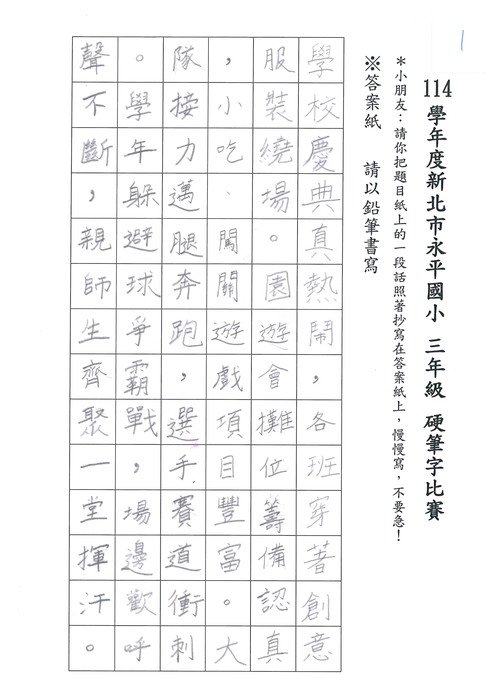 1
114 學年度新北市永平國小 三年級 硬筆字比賽
＊小朋友：請你把題目紙上的一段話照著抄寫在答案紙上，慢慢寫，不要急！
※答案紙 請以鉛筆書寫
學校慶典真熱鬧，各班穿著創意
服裝繞場。園遊會攤位籌備認真
，小吃、闖關遊戲項目豐富。大
隊接力邁腿奔跑，選手賽道衝刺
。學年躲避球爭霸戰，場邊歡呼
聲不斷，親師生齊聚一堂揮汗。